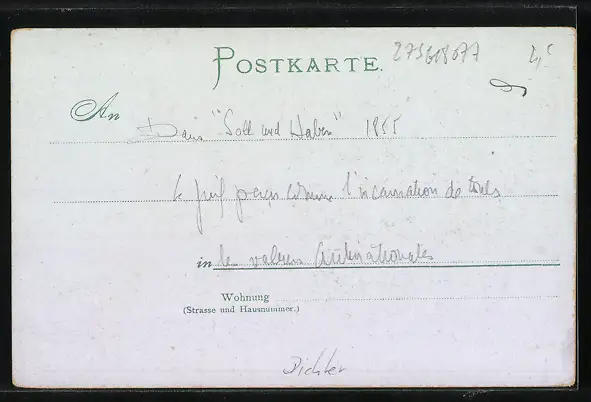 POSTKARTE.
275608077
An
Dans "Soll und Haben" 1855
le juif perçu comme l'incarnation de toutes
in les valeurs antinationales
Wohnung
(Strasse und Hausnummer.)
Dichter